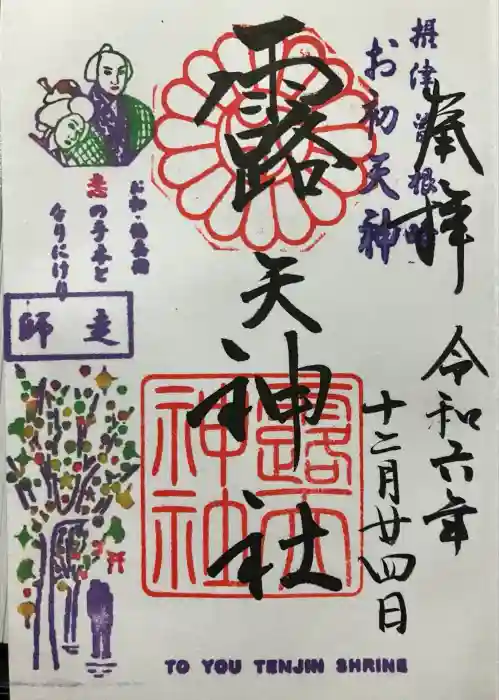 奉拝
摂津曽根崎
お初天神
露天神社
令和六年
十二月廿四日
お初・徳兵衛
恋の手本と
なりにけり
師走
露天神社
TO YOU TENJIN SHRINE